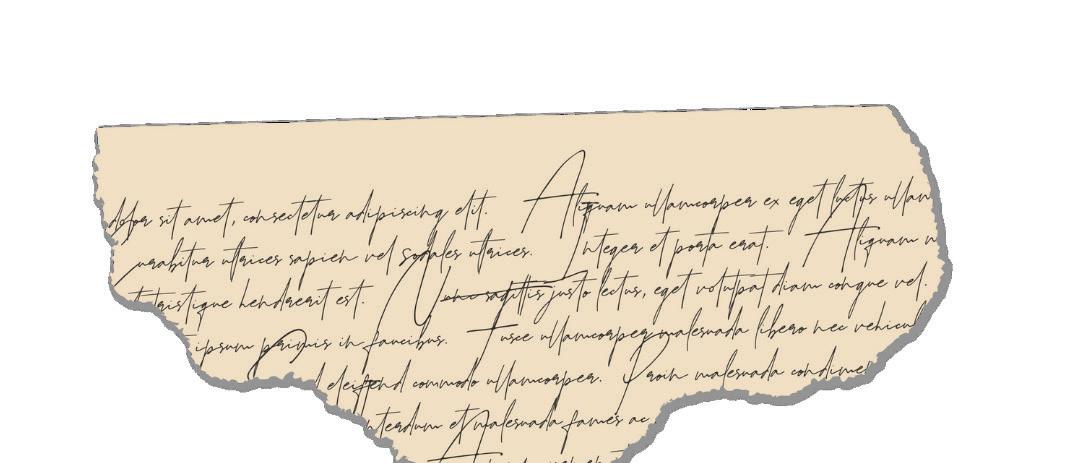 dolor sit amet, consectetur adipiscing elit. Aliquam ullamcorper ex eget luctus ullam
urabitur ultrices sapien vel sodales ultrices. Integer et porta erat. Aliquam n
t tristique hendrerit est. Nunc sagittis justo lectus, eget volutpat diam congue vel.
ipsum primis in faucibus. Fusce ullamcorper malesuada libero nec vehicul
eleifend commodo ullamcorper. Proin malesuada condime
nterdum et malesuada fames ac